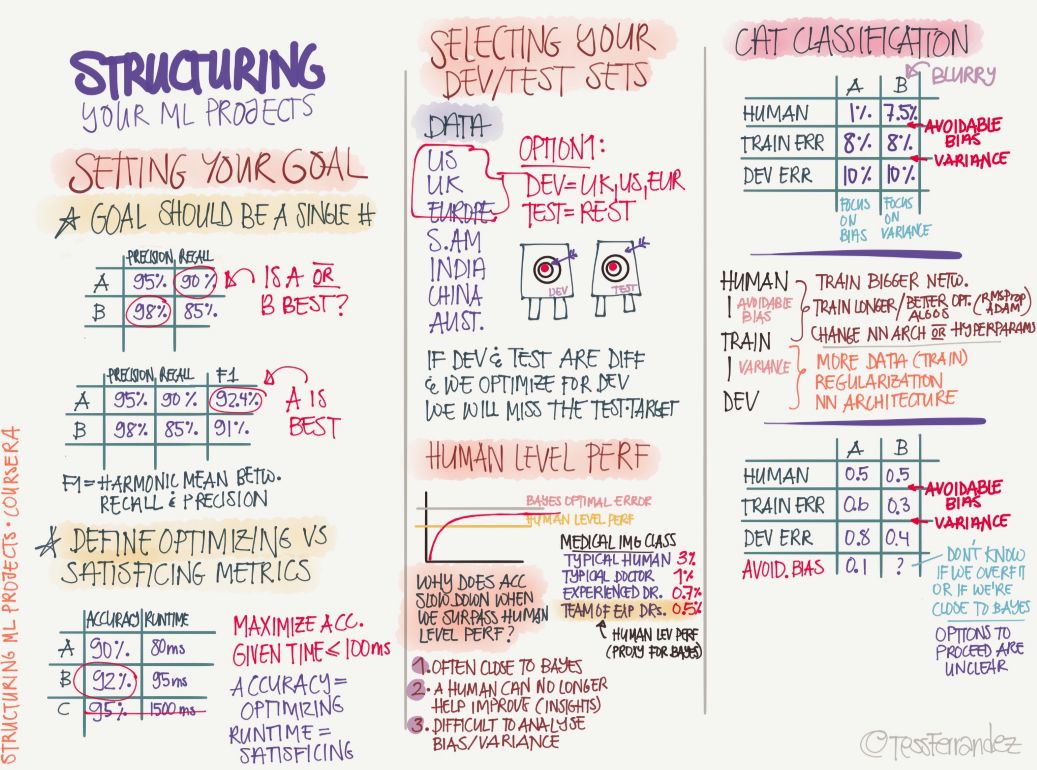 STRUCTURING
YOUR ML PROJECTS
SETTING YOUR GOAL
☆ GOAL SHOULD BE A SINGLE #
PRECISION RECALL
A 95% 90%
B 98% 85%
IS A OR
B BEST?
PRECISION RECALL F1
A 95% 90% 92.4%
B 98% 85% 91%
A IS
BEST
F1 = HARMONIC MEAN BETW.
RECALL & PRECISION
☆ DEFINE OPTIMIZING VS
SATISFICING METRICS
ACCURACY RUNTIME
A 90% 80ms
B 92% 95ms
C 95% 1500ms
MAXIMIZE ACC.
GIVEN TIME ≤ 100ms
ACCURACY =
OPTIMIZING
RUNTIME =
SATISFICING
STRUCTURING ML PROJECTS · COURSERA
SELECTING YOUR
DEV/TEST SETS
DATA
US
UK
EUROPE
S.AM
INDIA
CHINA
AUST.
OPTION1:
DEV = UK, US, EUR
TEST = REST
DEV
TEST
IF DEV & TEST ARE DIFF
& WE OPTIMIZE FOR DEV
WE WILL MISS THE TEST-TARGET
HUMAN LEVEL PERF
BAYES OPTIMAL ERROR
HUMAN LEVEL PERF
MEDICAL IMG CLASS
TYPICAL HUMAN 3%
TYPICAL DOCTOR 1%
EXPERIENCED DR. 0.7%
TEAM OF EXP DRS. 0.5%
HUMAN LEV PERF
(PROXY FOR BAYES)
WHY DOES ACC
SLOW DOWN WHEN
WE SURPASS HUMAN
LEVEL PERF?
1. OFTEN CLOSE TO BAYES
2. A HUMAN CAN NO LONGER
HELP IMPROVE (INSIGHTS)
3. DIFFICULT TO ANALYSE
BIAS/VARIANCE
CAT CLASSIFICATION
A B BLURRY
HUMAN 1% 7.5%
TRAIN ERR 8% 8%
DEV ERR 10% 10%
AVOIDABLE
BIAS
VARIANCE
FOCUS
ON
BIAS
FOCUS
ON
VARIANCE
HUMAN
AVOIDABLE
BIAS
TRAIN
VARIANCE
DEV
TRAIN BIGGER NETW.
TRAIN LONGER/BETTER OPT. ALGOS (RMSProp ADAM)
CHANGE NN ARCH OR HYPERPARAMS
MORE DATA (TRAIN)
REGULARIZATION
NN ARCHITECTURE
A B
HUMAN 0.5 0.5
TRAIN ERR 0.6 0.3
DEV ERR 0.8 0.4
AVOID. BIAS 0.1 ?
AVOIDABLE
BIAS
VARIANCE
DON'T KNOW
IF WE OVERFIT
OR IF WE'RE
CLOSE TO BAYES
OPTIONS TO
PROCEED ARE
UNCLEAR
@TessFerrandez